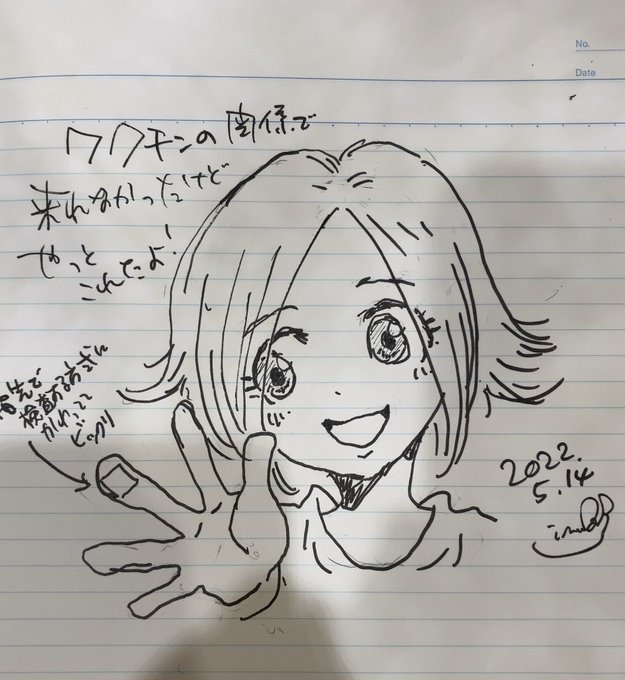 No.
Date
ワクチンの関係で
来れなかったけど
やっと
これたよ!
指先で
検査する方式に
かわってて
ビックリ
2022.
5.14